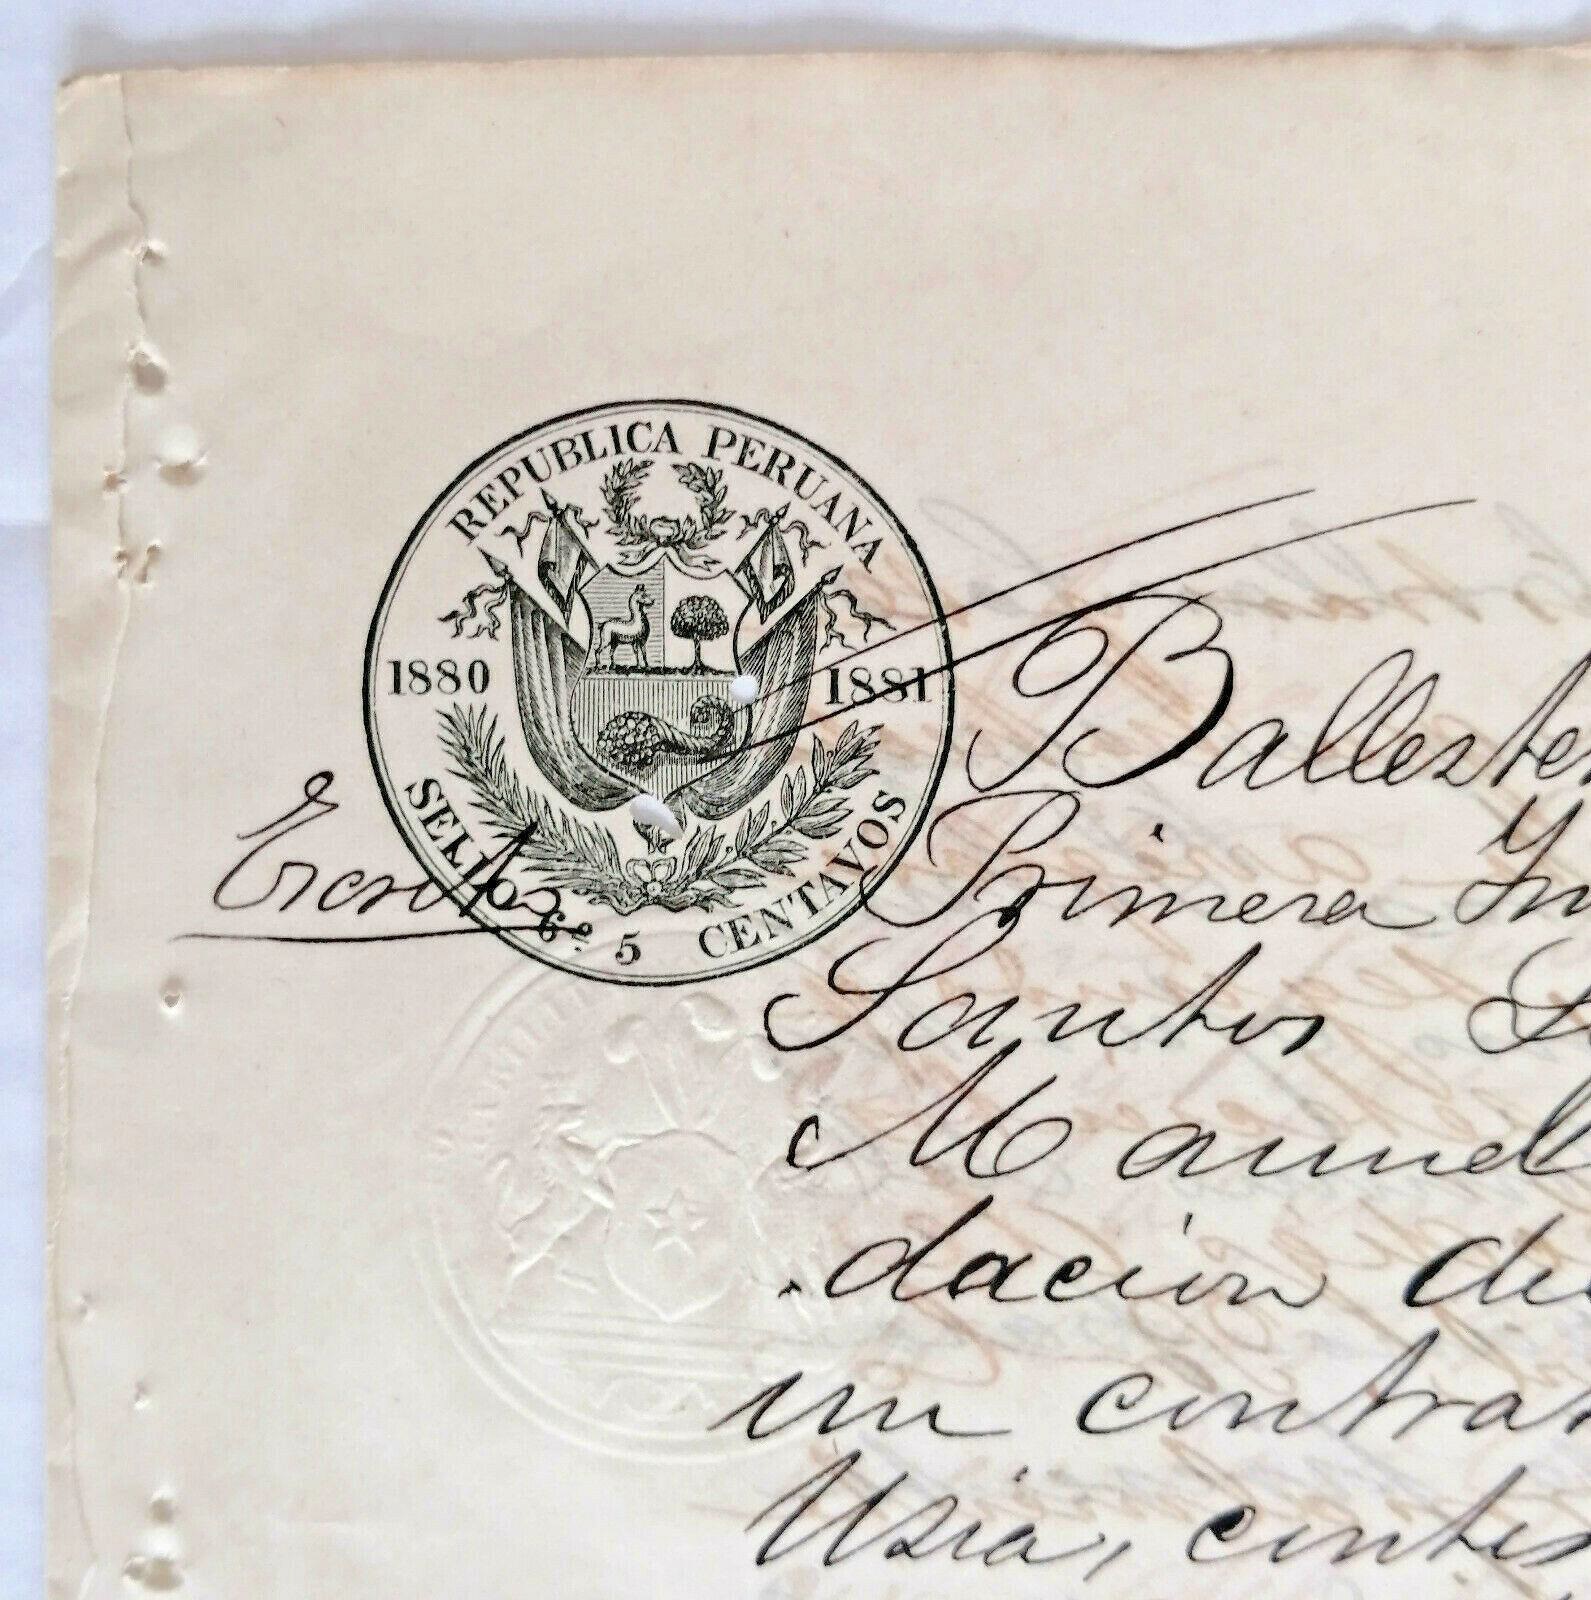 REPUBLICA PERUANA
1880 1881
SELLO 6º 5 CENTAVOS
Escrito
Ballester
Primera In
Santos
Manuel
dacion de
un contrat
Usia, contes